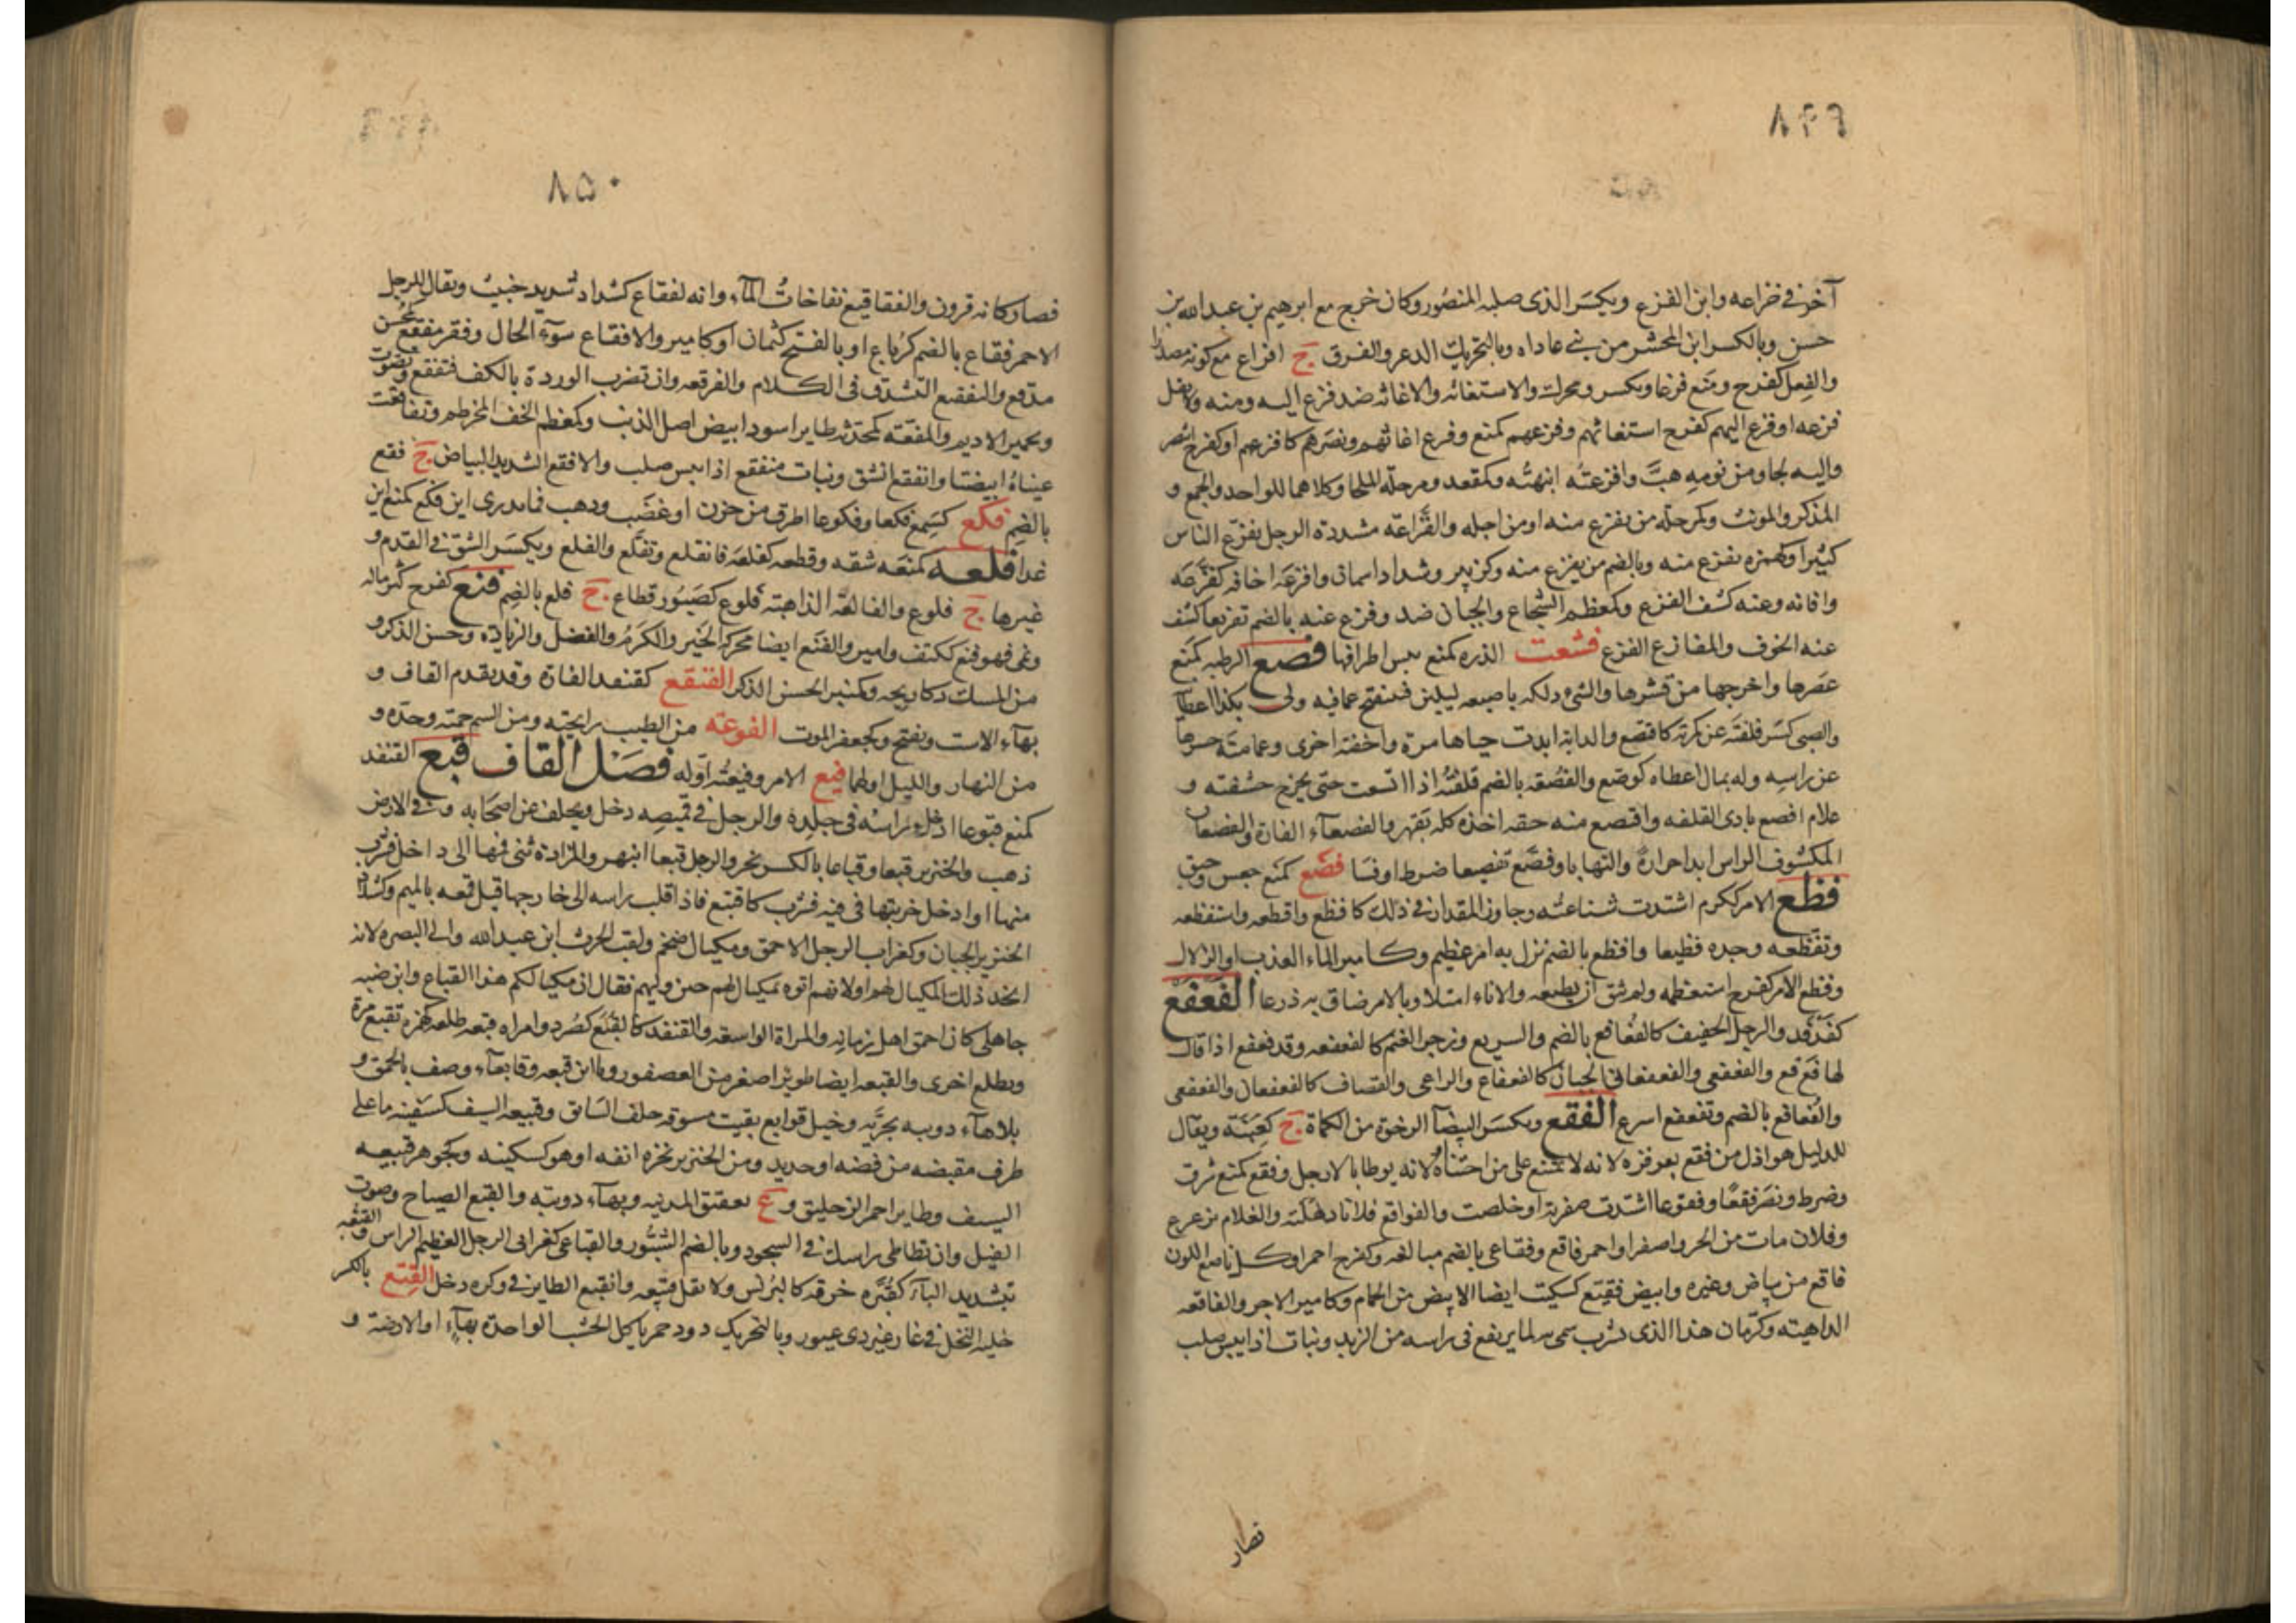 ٨٤٩
آخر في خزاعه وابن الفزع ويكسر الذى صلبه المنصور وكان خرج مع ابرهيم بن عبد الله بن
حسن وبالكسر ابن المجشر من بنى عاداه وبالتحريك الذعر والفرق ج افزاع مع كونه مصدرا
والفعل كفرح ومنع فزعا ويكسر ويحرك والاستغاثه والاغاثه ضد فزع اليه ومنه ولا تقل
فزعه او فزع اليهم كفرح استغاثهم وفزعهم كمنع وفرح اغاثهم ونصرهم كافزعهم او كفرح انتصر
واليه لجا ومن نومه هبّ وافزعته انبهته وكمقعد ومرحلة الملجا وكلاهما للواحد والجمع و
المذكر والمونث وكمرحلة من يفزع منه او من اجله والفزاعة مشددة الرجل يفزع الناس
كثيرا وكهمزه يفزع منه وبالضم من يفزع منه وكزبير وشداد اسمان وافزعه اخافه كفزعه
واغاثه وعنه كشف الفزع وكمعظم الشجاع والجبان ضد وفزع عنه بالضم تفزيعا كشف
عنه الخوف والمفازع الفزع فشعت الذره كمنع يبس اطرافها فصع الرطبه كمنع
عصرها واخرجها من قشرها والشئ دلكه باصبعه ليلين فينفتح عما فيه ولى بكذا اعطا
والصبى كسر قلفته عن كمرته كافتصع والدابة ابدت حياها مرة واخفته اخرى وعمامته حسرها
عن راسه وله بمال اعطاه كوضع والفصعة بالضم قلفته اذا اتسعت حتى يخرج حشفته و
غلام افصع بادى القلفه وافتصع منه حقه اخذه كله بقهر والفصعاء الفارة والفصعان
المكشوف الراس ابدا حرارة والتهابا وفصّع تفصيعا ضرط او فسا فضع كمنع جعس وحبق
فظع الامر ككرم اشتدت شناعته وجاوز المقدار في ذلك كافظع وافظعه واستفظعه
وتفظعه وجده فظيعا وافظع بالضم نزل به امر عظيم وكامير الماء العذب او الزلال
وفظع الامر كفرح استعظمه ولم يثق ان يطيعه والاناء امتلا وبالامر ضاق به ذرعا الفعفع
كفدفد والرجل الخفيف كالفعافع بالضم والسريع وزجر الغنم كالفعفعه وقد فعفع اذا قال
لها فع فع والفعفعى والفعفعانى الجبان كالفعفاع والراعى والقصاب كالفعفعان والفعفعى
والفعافع بالضم وتفعفع اسرع الفقع ويكسر البيضاء الرخوة من الكماة ج كعنبة ويقال
للذليل هو اذل من فقع بقرقره لانه لا يمتنع على من اجتناه لانه يوطا بالارجل وفقع كمنع سرق
وضرط ونصر فقعًا وفقوعا اشتدت صفرته او خلصت والفواقع فلانا دهكته والغلام ترعرع
وفلان مات من الحر واصفر او احمر فاقع وفقاعى بالضم مبالغه وكفرح احمر او كل ناصع اللون
فاقع من بياض وغيره وابيض فقيع كسكيت ايضا الابيض من الحمام وكامير الاحمر والفاقعه
الداهيته وكرمان هذا الذى يشرب سمى به لما يرتفع فى راسه من الزبد ونبات اذا يبس صلب
فصار
٨٥٠
فصار كانه قرون والفقاقيع نفاخات الماء وانه لفقاع كشداد شديد خبيث ويقال للرجل
الاحمر فقاع بالضم كرباع او بالفتح كثمان او كامير والافقاع سوء الحال وفقر مفقع كمحسن
مدقع والتفقيع التشدق فى الكلام والفرقعه وان تضرب الوردة بالكف فتفقع وتصوت
وتحمير الاديم والمفقعة كمحدثه طاير اسود ابيض اصل الذنب وكمعظم الخف المخرطم وتفاقعت
عيناه ابيضتا وانفقع انشق ونبات منفقع اذا يبس صلب والافقع الشديد البياض ج فقع
بالضم فكع كسمع فكعا وفكوعا اطرق من حزن او غضب وذهب فما يدرى اين فكع كمنع اين
غدا فلعه كمنعه شقه وقطعه كفلعه فانفلع وتفلع والفلع ويكسر الشق فى القدم و
غيرها ج فلوع والفالعة الداهيته فلوع كصبور قطاع ج فلع بالضم فنع كفرح كثر ماله
ونمى فهو فنع ككتف وامير والفنع ايضا محركة الخير والكرم والفضل والزيادة وحسن الذكر و
من المسك ذكا ريحه وكمنبر الحسن الذكر الفنقع كقنفد الفارة وقد يقدم القاف و
بهاء الاست ويفتح وكجعفر الموت الفوعه من الطيب رايحته ومن السم حمته وحدّه و
من النهار والليل اولهما فيع الامر وفيعته اوله فصل القاف قبع القنفد
كمنع قبوعا ادخل راسه فى جلده والرجل في قميصه دخل وتخلف عن اصحابه وفي الارض
ذهب والخنزير قبعا وقباعا بالكسر نخر والرجل قبعا انبهر والمزادة ثنى فمها الى داخل فشرب
منها او ادخل خربتها فى فيه فشرب كاقتبع فاذا قلب راسه الى خارجها قيل قمعه بالميم وكشداد
الخنزير الجبان وكغراب الرجل الاحمق ومكيال ضخم ولقب الحرث ابن عبد الله والى البصره لانه
اتخذ ذلك المكيال لهم او لانهم اتوه بمكيال لهم حين وليهم فقال ان مكيالكم هذا القباع وابن ضبه
جاهلى كان احمق اهل زمانه والمراة الواسعة والقنفد كالقبع كصرد وامراه قبعه طلعه كهمزه تقبع مرة
وتطلع اخرى والقبعه ايضا طوير اصغر من العصفور ويا ابن قبعه وقابعاء وصف بالحمق و
بلا هاء دويبه بحرية وخيل قوابع بقيت مسوقه خلف السابق وقبيعه السيف كسفينه ما على
طرف مقبضه من فضه او حديد ومن الخنزير نخره انفه او هو كسكينه وكجوهر قبيعه
السيف وطاير احمر الرجلين و ع بعقيق المدينه وبهاء دويبه والقبع الصياح وصوت
الفيل وان تطاطى راسك في السجود وبالضم الشبور والقباعى كغرابى الرجل العظيم الراس والقبعه
بتشديد الباء كقبره خرقه كالبرنس ولا تقل قنبعه وانقبع الطاير في وكره دخل القتع بالكسر
خليه النحل في غار غير ذى عبور وبالتحريك دود حمر ياكل الخشب الواحدة بهاء او الارضة و